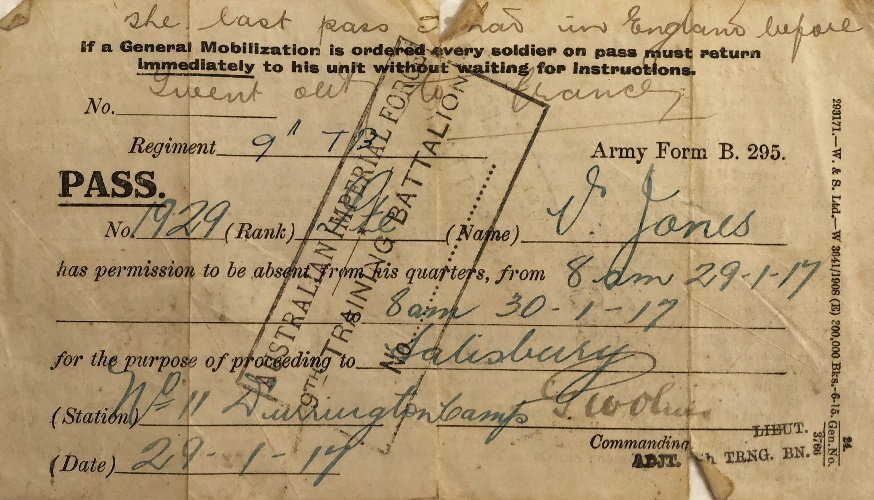 The last pass I had in England before
If a General Mobilization is ordered every soldier on pass must return
immediately to his unit without waiting for Instructions.
I went out to France
No.
Regiment 9th TB
Army Form B. 295.
PASS.
No. 1929 (Rank) Pte (Name) V. Jones
has permission to be absent from his quarters, from 8 am 29-1-17
8am 30-1-17
for the purpose of proceeding to Salisbury
(Station) No 11 Durrington Camp
Commanding
(Date) 29-1-17
LIEUT.
ADJT. 9th TRNG. BN.
AUSTRALIAN IMPERIAL FORCE
9TH TRAINING BATTALION
No.
293171.—W. & S. Ltd.—W 3041/1908 (E) 200,000 Bks.-6-15. Gen. No.
3766